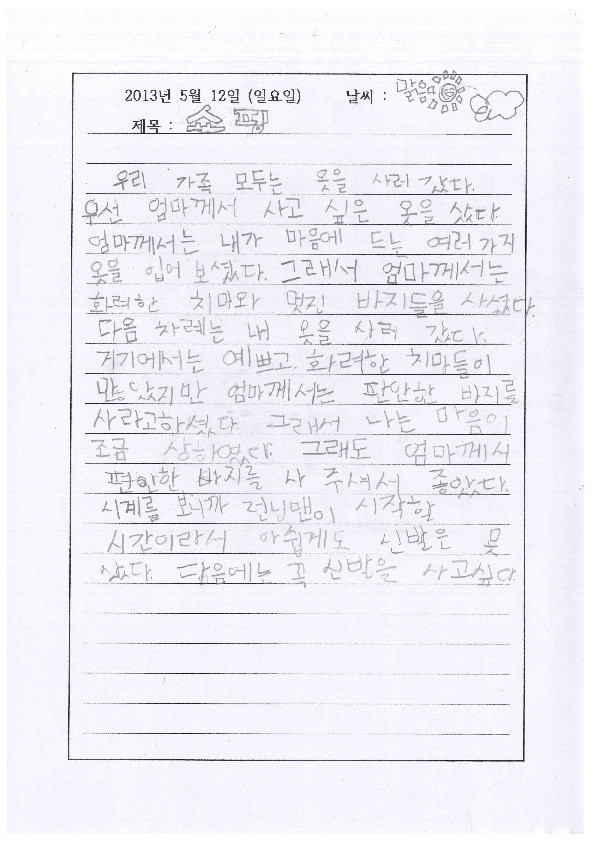 2013년 5월 12일 (일요일) 날씨 : 맑음
제목 : 쇼핑
우리 가족 모두는 옷을 사러 갔다.
우선 엄마께서 사고 싶은 옷을 샀다.
엄마께서는 내가 마음에 드는 여러가지
옷을 입어 보셨다. 그래서 엄마께서는
화려한 치마와 멋진 바지들을 사셨다.
다음 차례는 내 옷을 사러 갔다.
거기에서는 예쁘고, 화려한 치마들이
많았지만 엄마께서는 편안한 바지를
사라고하셨다. 그래서 나는 마음이
조금 상하였다. 그래도 엄마께서
편안한 바지를 사 주셔서 좋았다.
시계를 보니까 런닝맨이 시작할
시간이라서 아쉽게도 신발은 못
샀다. 다음에는 꼭 신발을 사고싶다.